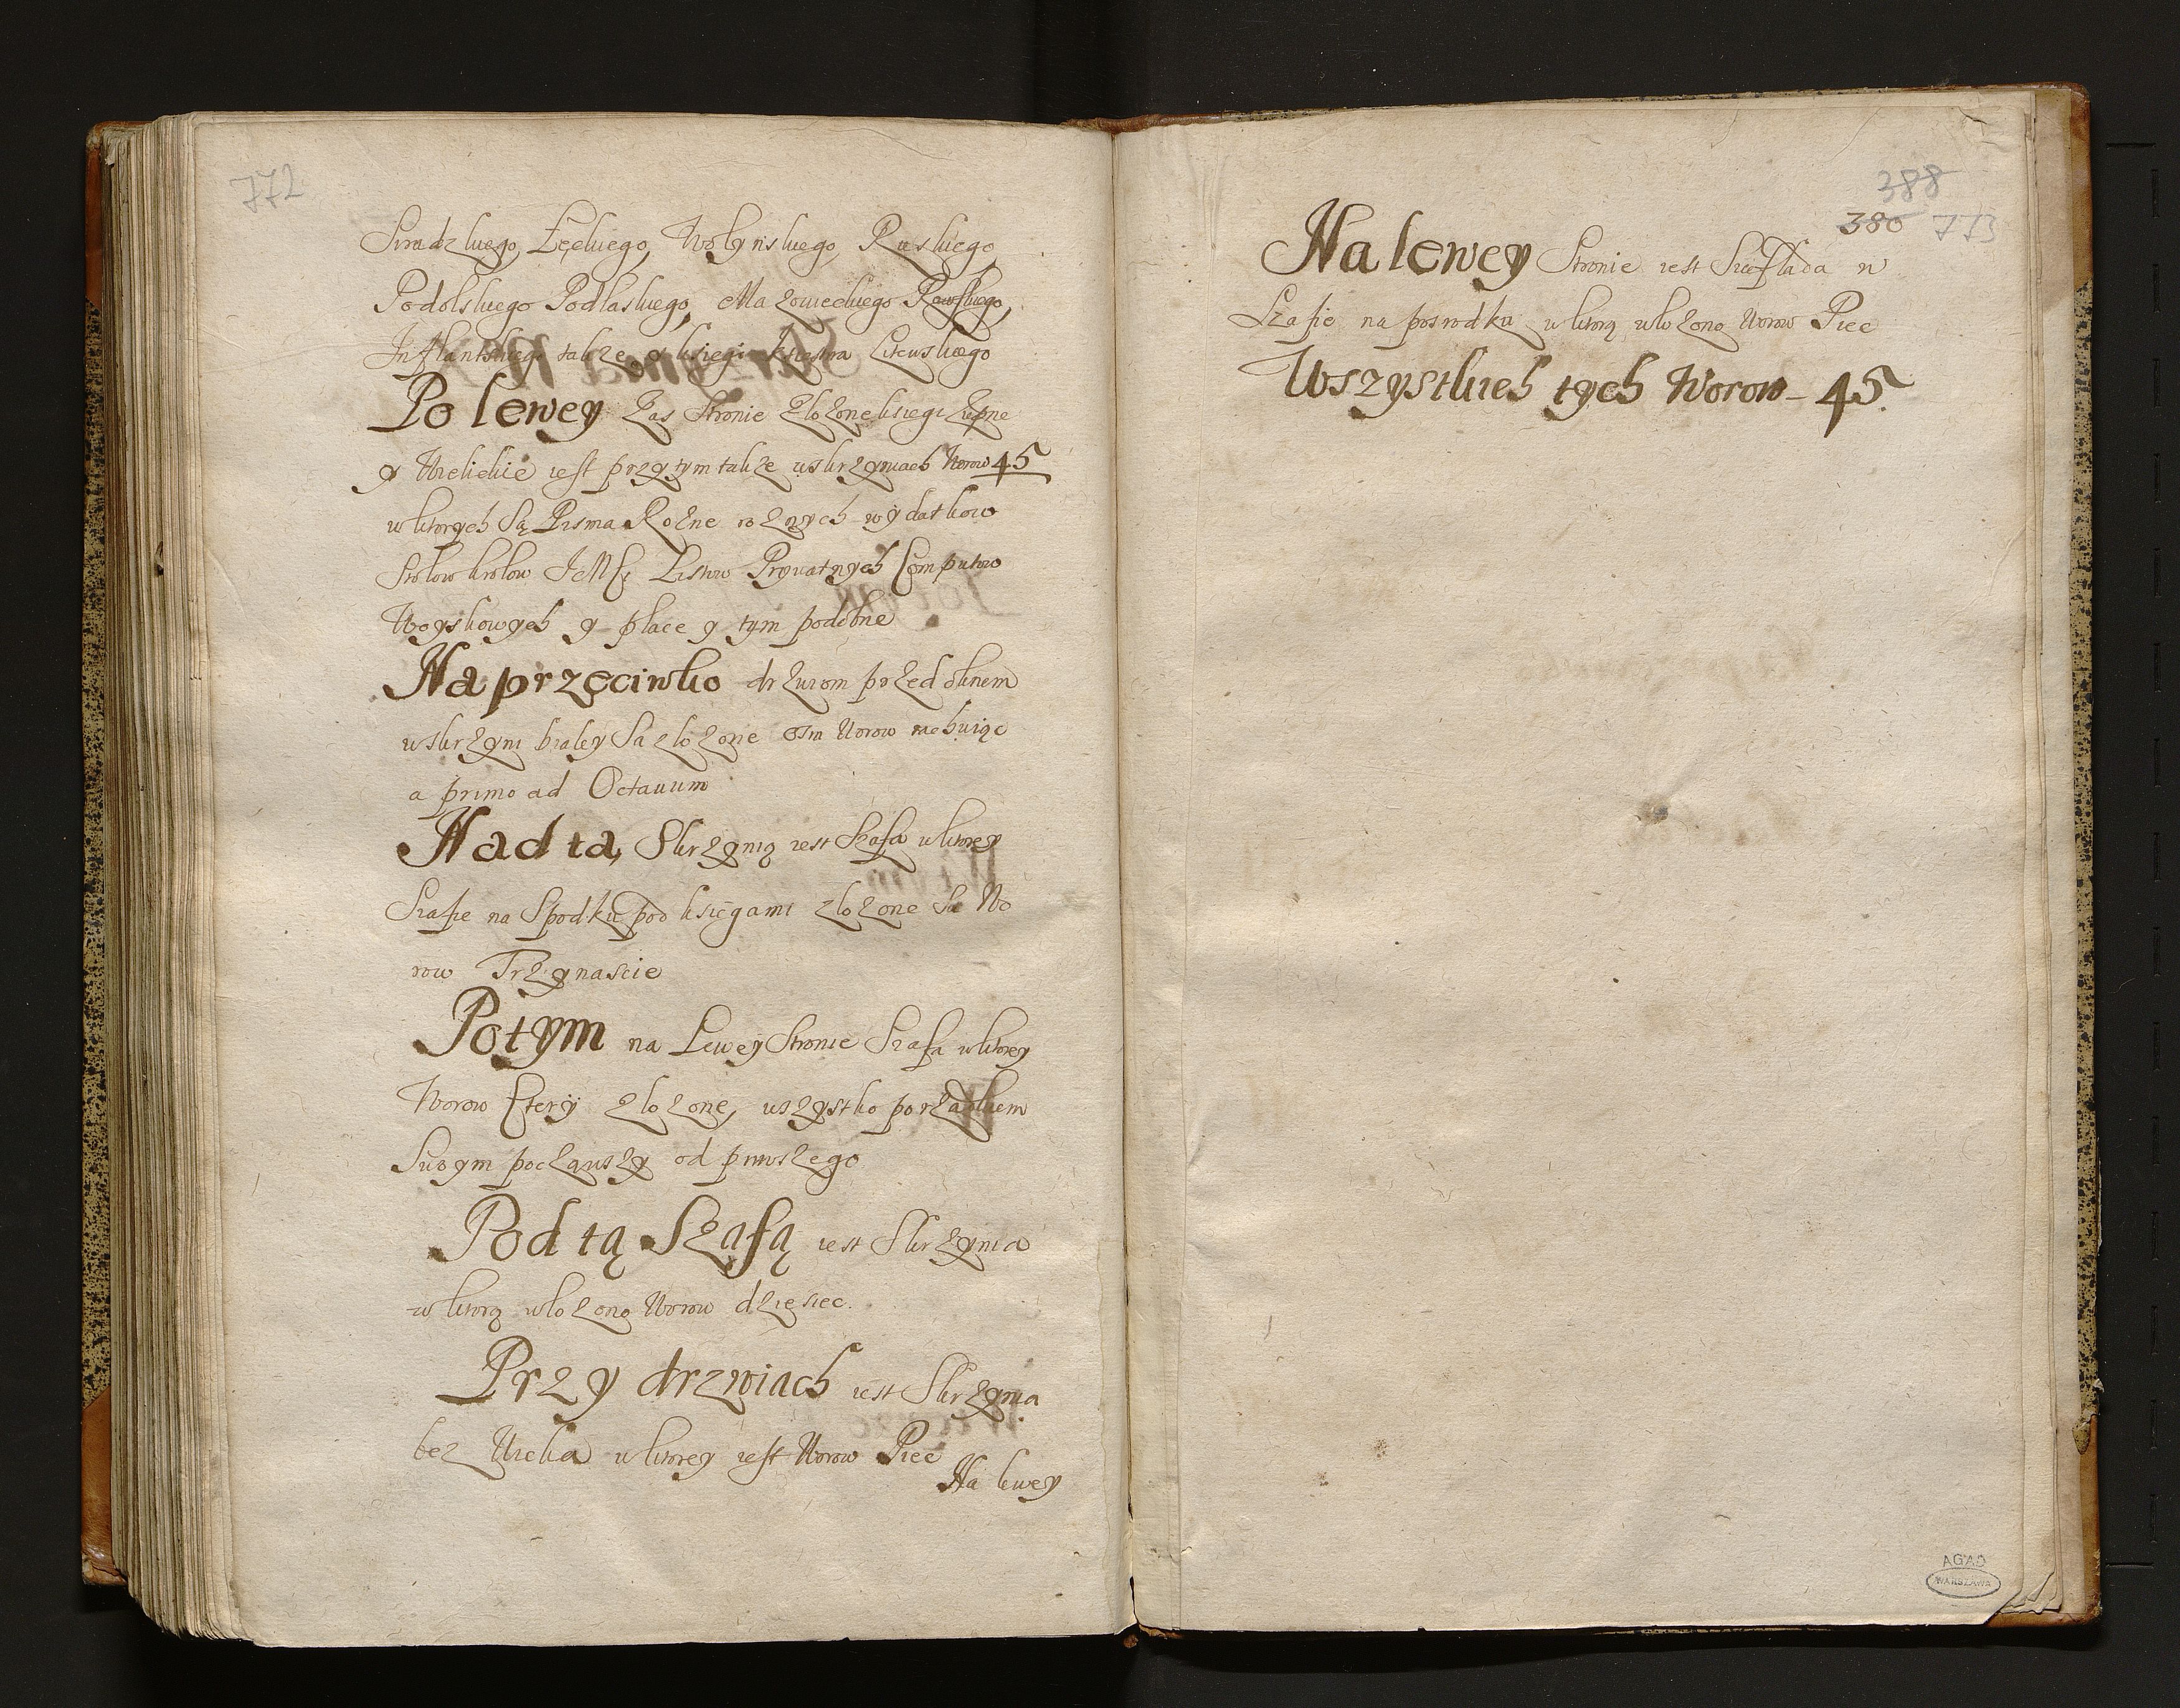 772
Siradzkiego, Łęckiego, Wołynskiego Ruskiego
Podolskiego Podlaskiego, Mazowieckiego Rawskiego,
Inflantskiego także, y ksiegi Xiestwa Litewskiego
Po lewey zas Stronie złozone ksiegi Zupne
y Wielickie iest przy tym takze w skrzyniach Worow 45
w ktorych Są Pisma Rozne roznych wydatkow
Stołow krolow Listow Prywatnych Computow
Woyskowych y płace y tym podobne
Naprzeciwko drzwiom przed oknem
w skrzyni białey Sa złozone osm Worow rachuiąc
a primo ad Octauum
Nad tą Skrzynią iest Szafa w ktorey
Szafie na Spodku pod księgami złozone Sa Wo
row Trzynascie
Potym na Lewey Stronie Szafa w ktorey
Worow Cztery złozone, wszystko porządkiem
Swoym począwszy od pirwszego
Pod tą Szafą iest Skrzynia
w ktorą włozono Worow dziesiec.
Przy drzwiach iest Skrzynia
bez Wieka w ktorey iest Worow Piec
Na lewey
388
380 773
Na lewey Stronie iest Szuflada w
Szafie na posrodku w ktorą włozono Worow Piec
Wszystkich tych Worow - 45.
AGAD
WARSZAWA